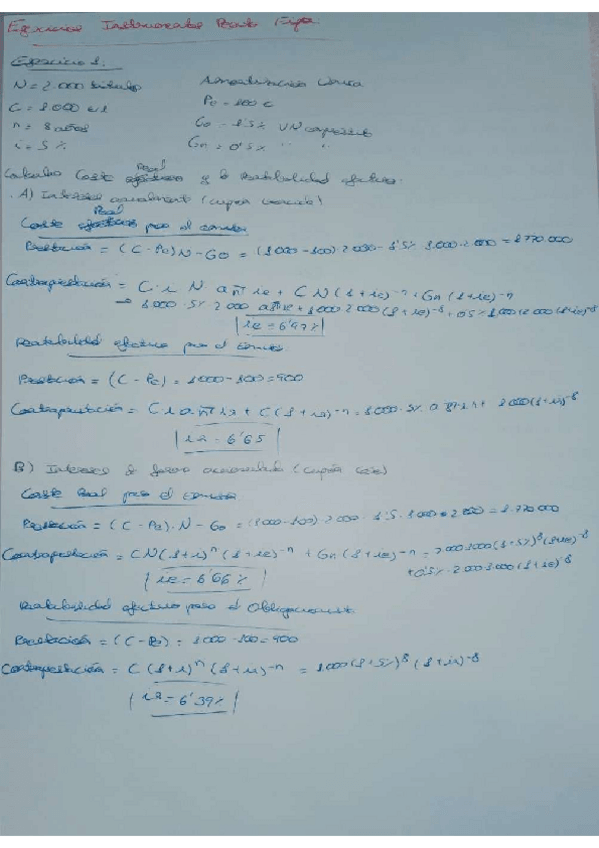 Ejercicios Instrumentos Renta Fija
Ejercicio 1.
N = 2.000 títulos   Amortización Única
C = 1.000 €/t   Pe = 100 €
n = 8 años   Go = 1'5% VN empréstito
i = 5%   Gn = 0'5% " "
Calcular Coste Real y la Rentabilidad efectiva.
A) Intereses anualmente (cupón vencido)
Coste Real para el emisor
Prestación = (C - Pe) N - Go = (1000 - 100) · 2000 - 1'5% 1.000 · 2.000 = 1.770.000
Contraprestación = C · i N · a n┐ ie + C N (1 + ie)^-n + Gn (1 + ie)^-n
→ 1.000 · 5% · 2.000 a n┐ ie + 1.000 2.000 (1 + ie)^-8 + 0'5% 1.000 · 2.000 (1 + ie)^-8
ie = 6'97%
Rentabilidad efectiva para el
Prestación = (C - Pe) = 1000 - 100 = 900
Contraprestación = C i a n┐ ia + C (1 + ia)^-n = 1000 · 5% · a 8┐ ia + 1000 (1 + ia)^-8
ia = 6'65
B) Intereses de forma acumulada (cupón cero)
Coste Real para el emisor
Prestación = (C - Pe) · N - Go = (1000 - 100) · 2000 - 1'5 · 1.000 · 2.000 = 1.770.000
Contraprestación = C N (1 + i)^n (1 + ie)^-n + Gn (1 + ie)^-n = 2000 1000 (1 + 5%)^8 (1 + ie)^-8
+ 0'5% · 2.000 1.000 (1 + ie)^-8
ie = 6'66%
Rentabilidad efectiva para el Obligacionista
Prestación = (C - Pe) = 1000 - 100 = 900
Contraprestación = C (1 + i)^n (1 + ia)^-n = 1.000 (1 + 5%)^8 (1 + ia)^-8
ia = 6'39%